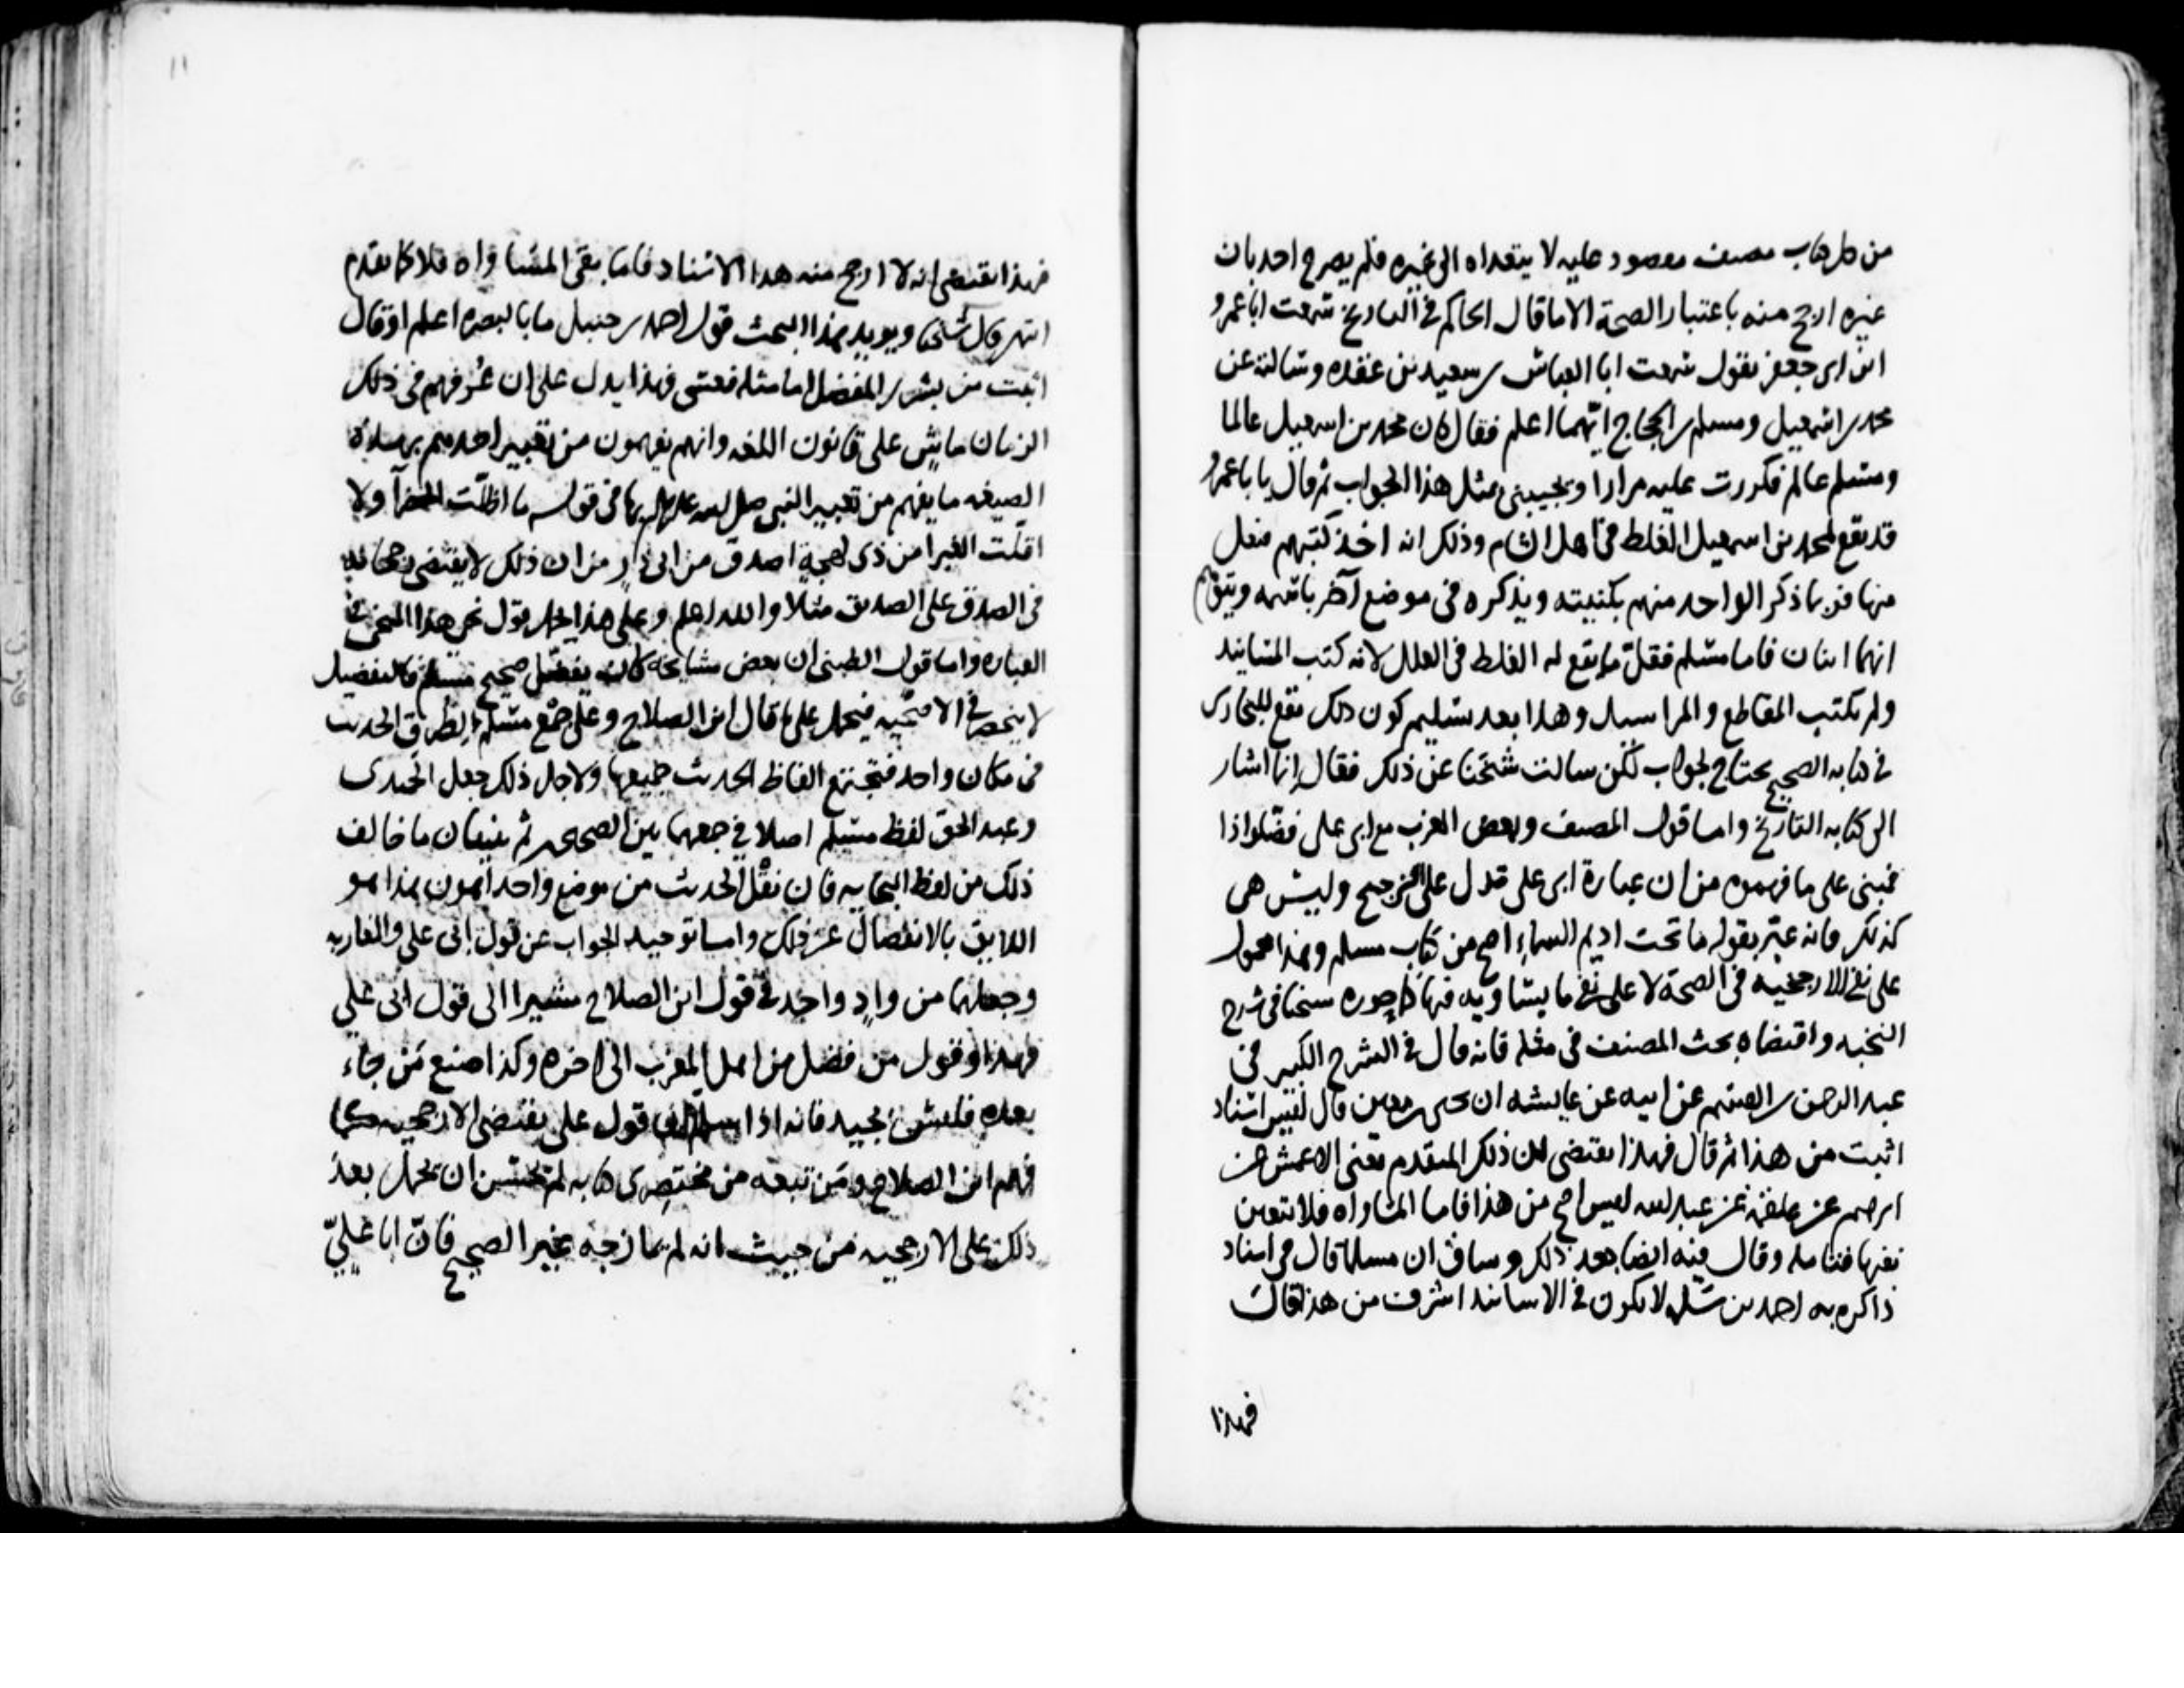 من كل كتاب مصنف مقصود عليه لا يتعداه الى غيره فلم يصرح احد بان
غيره ارجح منه باعتبار الصحة الا ما قال الحاكم في التاريخ سمعت ابا عمرو
ابن ابي جعفر يقول سمعت ابا العباس بن سعيد بن عقده وسالته عن
محمد بن اسمعيل ومسلم بن الحجاج ايهما اعلم فقال كان محمد بن اسمعيل عالما
ومسلم عالم فكررت عليه مرارا ويجيبني بمثل هذا الجواب ثم قال يا با عمرو
قد يقع لمحمد بن اسمعيل الغلط في اهل الشام وذلك انه اخذ كتبهم فنظر
منها فربما ذكر الواحد منهم بكنيته ويذكره في موضع آخر باسمه ويتوهم
انهما اثنان فاما مسلم فقل ما يقع له الغلط في العلل لانه كتب المسانيد
ولم يكتب المقاطع والمراسيل وهذا بعد تسليم كون ذلك يقع للبخاري
في كتابه الصحيح يحتاج لجواب لكن سالت شيخنا عن ذلك فقال انما اشار
الى كتابه التاريخ واما قول المصنف وبعض الغرب مع ابي علي فضلوا ذا
فمبني على ما فهموه من ان عبارة ابي علي تدل على الترجيح وليس هي
كذلك فانه عبر بقوله ما تحت اديم السماء اصح من كتاب مسلم وهذا محمول
على نفي الارجحيه في الصحة لا على نفي ما يساويه فيها كما جوزه شيخنا في شرح
النخبه واقتضاه بحث المصنف في مثله فانه قال في الشرح الكبير في
عبد الرحمن بن القسم عن ابيه عن عايشه ان يحيى بن معين قال ليس اسناد
اثبت من هذا ثم قال فهذا يقتضي ان ذلك المتقدم يعني الاعمش عن
ابرهيم عن علقمة عن عبد الله ليس ارجح من هذا فاما المساواه فلا يتعين
نفيها فتامله وقال فيه ايضا بعد ذلك وساق ان مسلما قال في اسناد
ذاكره به احمد بن سلمه لا يكون في الاسانيد اشرف من هذا قال
فهذا
١١
فهذا يقتضي انه لا ارجح منه هذا الاسناد فاما بقي المساواه فلا كما تقدم
انتهى قال شيخنا ويويد هذا البحث قول احمد بن حنبل ما بالبصره اعلم او قال
اثبت من بشر بن المفضل اما مثله فعسى فهذا يدل على ان عرفهم في ذلك
الزمان ماش على قانون اللغه وانهم يفهمون من تعبير احدهم بهذه
الصيغه ما يفهم من تعبير النبي صلى الله عليه وسلم بها في قوله ما اظلت الخضرا ولا
اقلت الغبرا من ذي لهجة اصدق من ابي ذر من ان ذلك لا يقتضي رجحانه
في الصدق على الصديق مثلا والله اعلم وعلى هذا يحمل قول نحو هذا المنحى في
العباره واما قول الطبني ان بعض مشايخه كان يفضل صحيح مسلم فالتفضيل
لا ينحصر في الاصحيه فيحمل على ما قال ابن الصلاح وعلى جمع مسلم لطرق الحديث
في مكان واحد فتجتمع الفاظ الحديث جميعها ولاجل ذلك جعل الحميدى
وعبد الحق لفظ مسلم اصلا في جمعهما بين الصحيحين ثم يبينان ما خالف
ذلك من لفظ البخاريه فان نقل الحديث من موضع واحد اهون هذا هو
اللايق بالانفصال عن ذلك واما توحيد الجواب عن قول ابي علي والمغاربه
وجعلهما من واد واحد في قول ابن الصلاح مشيرا الى قول ابي علي
فهذا وقول من فضل من اهل المغرب الى اخره وكذا صنع من جاء
بعده فليس بجيد فانه اذا قول علي يقتضي الارجحيه كما
فهم ابن الصلاح ومن تبعه من مختصري كتابه لم يحسن ان يحمل بعد
ذلك على الارجحيه من حيث انه لم يمازجه بغير الصحيح فان ابا علي